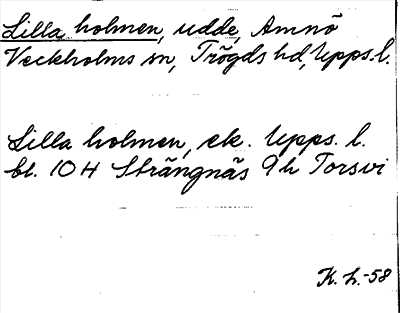 Lilla holmen, udde, Amnö
Veckholms sn, Trögds hd, Upps. l.
Lilla holmen, ek. Upps. l.
bl. 104 Strängnäs 9h Torsvi
K. L. -58